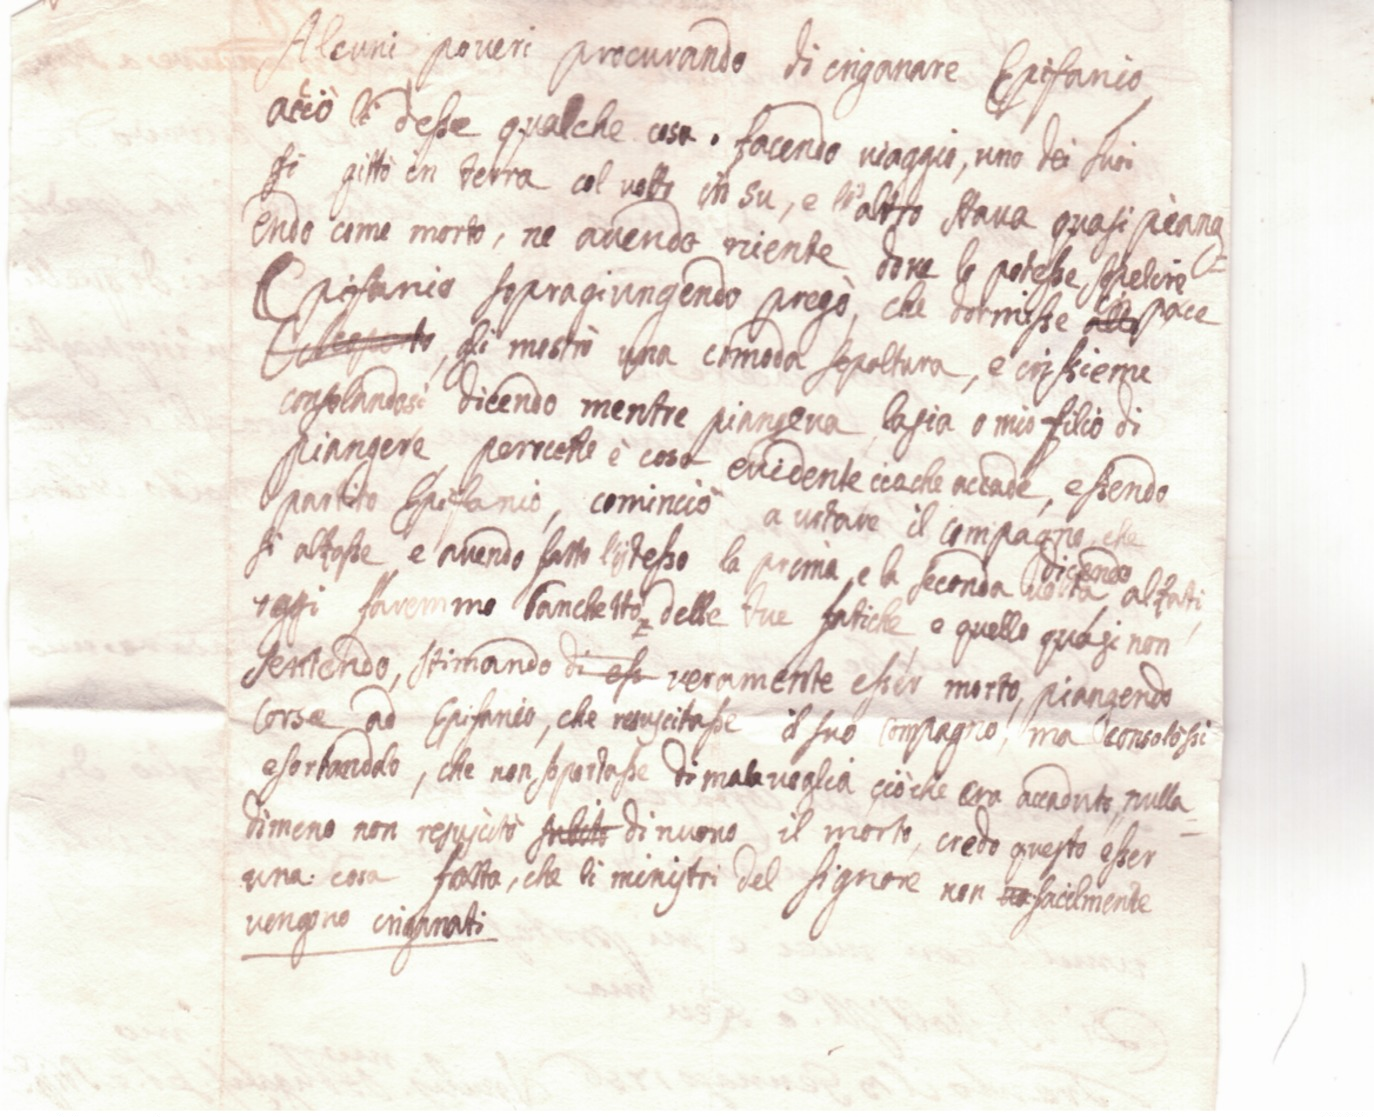 Alcuni poveri procurando di inganare Epifanio
acciò li desse qualche cosa. facendo viaggio, uno dei suoi
si gittò in terra col volto in su, e l'altro stava quasi piang=
endo come morto, ne avendo niente dove lo potesse sepelire
Epifanio sopragiungendo pregò, che dormisse pace
gli mostrò una comoda sepoltura, e insieme
consolandosi dicendo mentre piangeva lasia o mio filio di
piangere perroche è cosa evidente ciache accade, essendo
partito Epifanio, cominciò a urtare il compagno, che
si alzasse, e avendo fatto l'istesso la prima, e la seconda volta dicendo alzati,
oggi faremmo banchetto delle tue fatiche, e quello quasi non
sentendo, stimando di ess veramente esser morto, piangendo
corse ad Epifanio, che resuscitasse il suo compagno, ma consolossi
esortandolo, che non soportasse di mala voglia ciò che era accaduto, nulla=
dimeno non resuscitò subito di nuovo il morto, credo questo esser
una cosa fatta, che li ministri del Signore non facilmente
vengono inganati